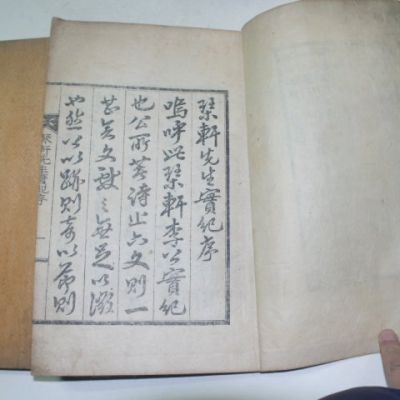 琹軒先生實紀序
嗚呼此琹軒李公實紀
也公所著詩止六文則一
甚矣文獻之無足以徵
也然以跡則奇以節則
琹軒先生實紀序
一